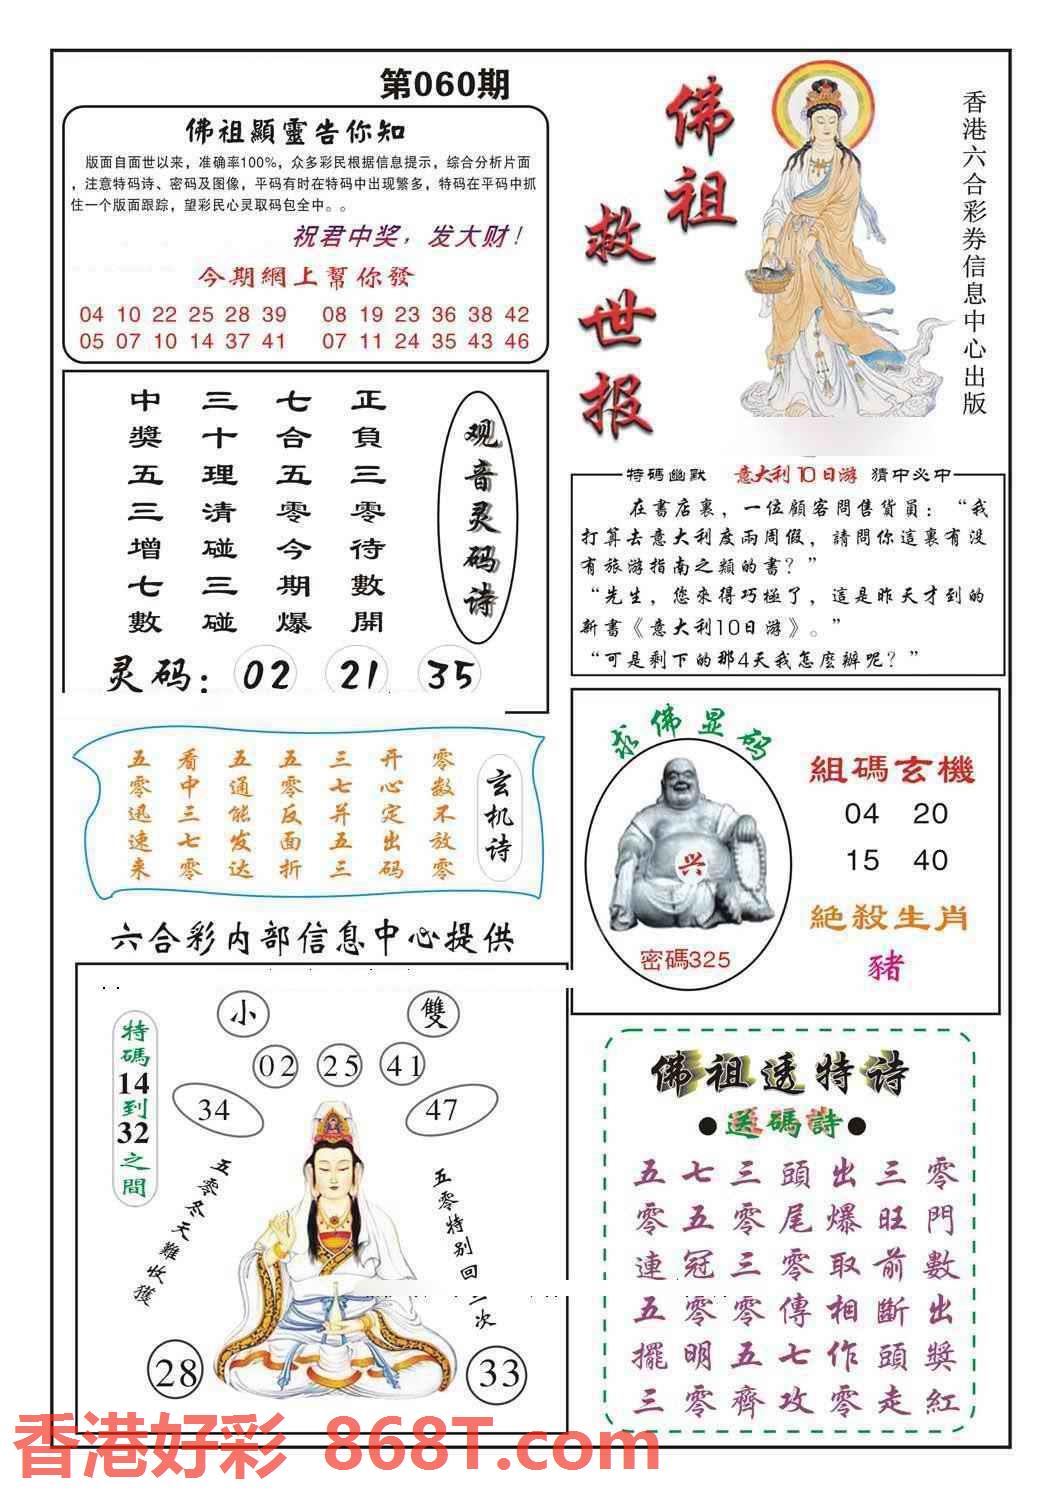 第060期
佛祖顯靈告你知
版面自面世以来，准确率100%，众多彩民根据信息提示，综合分析片面
，注意特码诗、密码及图像，平码有时在特码中出现繁多，特码在平码中抓
住一个版面跟踪，望彩民心灵取码包全中。。
祝君中奖，发大财！
今期網上幫你發
04 10 22 25 28 39 08 19 23 36 38 42
05 07 10 14 37 41 07 11 24 35 43 46
佛祖
救世报
香港六合彩券信息中心出版
观音灵码诗
正負三零待數開
七合五零今期爆
三十理清碰三碰
中獎五三增七數
灵码：02 21 35
特碼幽默 意大利10日游 猜中必中
在書店裏，一位顧客問售貨員：“我
打算去意大利度兩周假，請問你這裏有沒
有旅游指南之類的書？”
“先生，您來得巧極了，這是昨天才到的
新書《意大利10日游》。”
“可是剩下的那4天我怎麽辦呢？”
玄机诗
零数不放零
开心定出码
三七并五三
五零反面折
五通能发达
看中三七零
五零迅速来
求佛显码
兴
密碼325
組碼玄機
04 20
15 40
絕殺生肖
豬
六合彩内部信息中心提供
小 雙
02 25 41
34 47
特碼14到32之間
五零冬天難收獲
五零特别回
次
28 33
佛祖透特诗
●送碼詩●
五七三頭出三零
零五零尾爆旺門
連冠三零取前數
五零零傳相斷出
擺明五七作頭獎
三零齊攻零走紅
香港好彩 868T.com